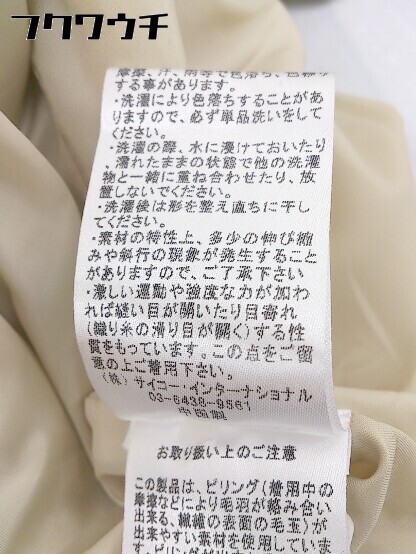 フクワウチ
摩擦、汗、雨等で色落ち、色移り
する事があります。
・洗濯により色落ちすることがあ
りますので、必ず単品洗いをして
ください。
・洗濯の際、水に浸けておいたり
、濡れたままの状態で他の洗濯
物と一緒に重ね合わせたり、放
置しないでください。
・洗濯後は形を整え直ちに干し
てください。
・素材の特性上、多少の伸び縮
みや斜行の現象が発生すること
がありますので、ご了承下さい
・激しい運動や強度な力が加わ
れば縫い目が開いたり目寄れ
(織り糸の滑り目が開く)する性
質をもっています。この点をご留
意の上ご着用下さい。
(株)サイコー・インターナショナル
03-6438-9561
中国製
お取り扱い上のご注意
この製品は、ピリング(着用中の
摩擦などにより毛羽が絡み合い
出来る、繊維の表面の毛玉)が
出来やすい素材を使用していま
す。ピリングが